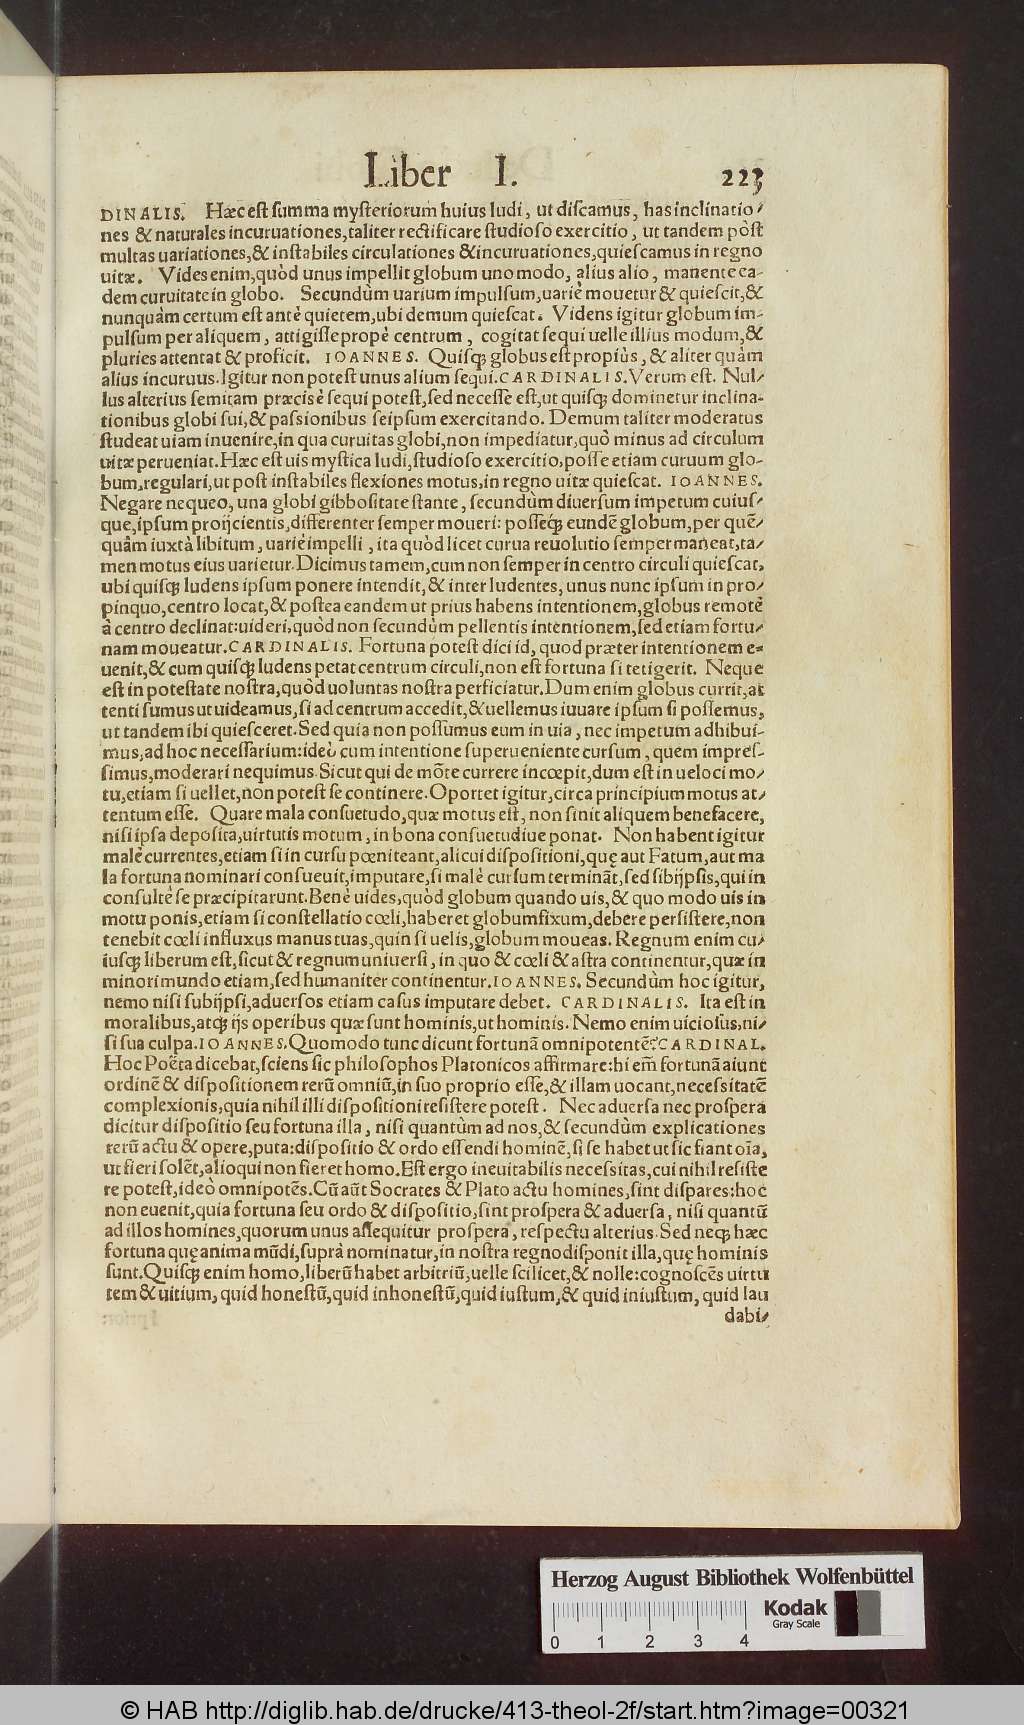 Liber I. 223
DINALIS. Hæc est summa mysteriorum huius ludi, ut discamus, has inclinatio⸗
nes & naturales incuruationes, taliter rectificare studioso exercitio, ut tandem pòst
multas uariationes, & instabiles circulationes & incuruationes, quiescamus in regno
uitæ. Vides enim, quòd unus impellit globum uno modo, alius alio, manente ea-
dem curuitate in globo. Secundùm uarium impulsum, uariè mouetur & quiescit, &
nunquàm certum est antè quietem, ubi demum quiescat. Videns igitur globum im-
pulsum per aliquem, attigisse propè centrum, cogitat sequi uelle illius modum, &
pluries attentat & proficit. IOANNES. Quisq; globus est propiùs, & aliter quàm
alius incuruus. Igitur non potest unus alium sequi. CARDINALIS. Verum est. Nul⸗
lus alterius semitam præcisè sequi potest, sed necesse est, ut quisq; dominetur inclina-
tionibus globi sui, & passionibus seipsum exercitando. Demum taliter moderatus
studeat uiam inuenire, in qua curuitas globi, non impediatur, quò minus ad circulum
uitæ perueniat. Hæc est uis mystica ludi, studioso exercitio, posse etiam curuum glo-
bum, regulari, ut post instabiles flexiones motus, in regno uitæ quiescat. IOANNES.
Negare nequeo, una globi gibbositate stante, secundùm diuersum impetum cuius⸗
que, ipsum proijcientis, differenter semper moueri: posseq́; eundē globum, per quē⸗
quâm iuxtà libitum, uariè impelli, ita quòd licet curua reuolutio semper maneat, ta-
men motus eius uarietur. Dicimus tamem, cum non semper in centro circuli quiescat,
ubi quisq; ludens ipsum ponere intendit, & inter ludentes, unus nunc ipsum in pro⸗
pinquo, centro locat, & postea eandem ut prius habens intentionem, globus remotè
à centro declinat: uideri, quòd non secundùm pellentis intentionem, sed etiam fortu⸗
nam moueatur. CARDINALIS. Fortuna potest dici id, quod præter intentionem e⸗
uenit, & cum quisq; ludens petat centrum circuli, non est fortuna si tetigerit. Neque
est in potestate nostra, quòd uoluntas nostra perficiatur. Dum enim globus currit, at
tenti sumus ut uideamus, si ad centrum accedit, & uellemus iuuare ipsum si possemus,
ut tandem ibi quiesceret. Sed quia non possumus eum in uia, nec impetum adhibui-
mus, ad hoc necessarium: ideò cum intentione superueniente cursum, quem impres-
simus, moderari nequimus. Sicut qui de mõte currere incœpit, dum est in ueloci mo⸗
tu, etiam si uellet, non potest se continere. Oportet igitur, circa principium motus at⸗
tentum esse. Quare mala consuetudo, quæ motus est, non sinit aliquem benefacere,
nisi ipsa deposita, uirtutis motum, in bona consuetudiue ponat. Non habent igitur
malè currentes, etiam si in cursu pœniteant, alicui dispositioni, quę aut Fatum, aut ma
la fortuna nominari consueuit, imputare, si malè cursum terminãt, sed sibijpsis, qui in
consultè se præcipitarunt. Benè uides, quòd globum quando uis, & quo modo uis in
motu ponis, etiam si constellatio cœli, haberet globum fixum, debere persistere, non
tenebit cœli influxus manus tuas, quin si uelis, globum moueas. Regnum enim cu⸗
iusq; liberum est, sicut & regnum uniuersi, in quo & cœli & astra continentur, quæ in
minori mundo etiam, sed humaniter continentur. IOANNES. Secundùm hoc igitur,
nemo nisi subijpsi, aduersos etiam casus imputare debet. CARDINALIS. Ita est in
moralibus, atq; ijs operibus quæ sunt hominis, ut hominis. Nemo enim uiciosus, ni⸗
si sua culpa. IOANNES. Quomodo tunc dicunt fortunã omnipotentẽ? CARDINAL.
Hoc Poëta dicebat, sciens sic philosophos Platonicos affirmare: hi em̃ fortunã aiunt
ordinẽ & dispositionem rerũ omniũ, in suo proprio esse, & illam uocant, necessitatẽ
complexionis, quia nihil illi dispositioni resistere potest. Nec aduersa nec prospera
dicitur dispositio seu fortuna illa, nisi quantùm ad nos, & secundùm explicationes
rerũ actu & opere, puta: dispositio & ordo essendi hominẽ, si se habet ut sic fiant oĩa,
ut fieri solẽt, alioqui non fieret homo. Est ergo ineuitabilis necessitas, cui nihil resiste
re potest, ideò omnipotẽs. Cũ aũt Socrates & Plato actu homines, sint dispares: hoc
non euenit, quia fortuna seu ordo & dispositio, sint prospera & aduersa, nisi quantũ
ad illos homines, quorum unus assequitur prospera, respectu alterius. Sed neq; hæc
fortuna quę anima mũdi, suprà nominatur, in nostra regno disponit illa, quę hominis
sunt. Quisq; enim homo, liberũ habet arbitriũ, uelle scilicet, & nolle: cognoscẽs uirtu
tem & uitium, quid honestũ, quid inhonestũ, quid iustum, & quid iniustum, quid lau
dabi⸗
Herzog August Bibliothek Wolfenbüttel
0 1 2 3 4
Kodak
Gray Scale
© HAB http://diglib.hab.de/drucke/413-theol-2f/start.htm?image=00321